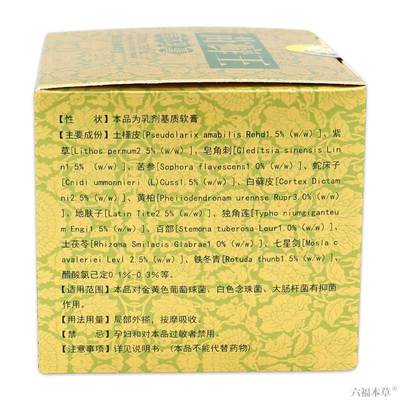 【性　　状】本品为乳剂基质软膏
【主要成份】土槿皮[Pseudolarix amabilis Rehd1.5%(w/w)]、紫
草[Lithos permum2.5%(w/w)]、皂角刺[Gleditsia sinensis Lin
n1.5% (w/w)]、苦参[Sophora flavescens1.0%(w/w)]、蛇床子
[Cnidi ummonnieri (L)Cuss1.5%(w/w)]、白藓皮[Cortex Dictam
ni2.5%(w/w)]、黄柏[Pheiiodendronam urense Rupr3.0%(w/w)
]、地肤子[Latin Tite2.5%(w/w)]、独角莲[Typho niumgiganteu
m Engi1.5%(w/w)]、百部[Stemona tuberosa Lour1.0%(w/w)]、
土茯苓[Rhizoma Smilacis Glabrae1.0%(w/w)]、七星剑[Mosla c
avaleriei Levl 2.5%(w/w)]、铁冬青[Rotuda thunb1.5%(w/w)]、
醋酸氯已定0.1%-0.3%等。
【适用范围】本品对金黄色葡萄球菌、白色念珠菌、大肠杆菌有抑菌
作用。
【用法用量】局部外搽，按摩吸收。
【禁　　忌】孕妇和对本品过敏者禁用。
【注意事项】详见说明书。(本品不能代替药物)
六福本草®